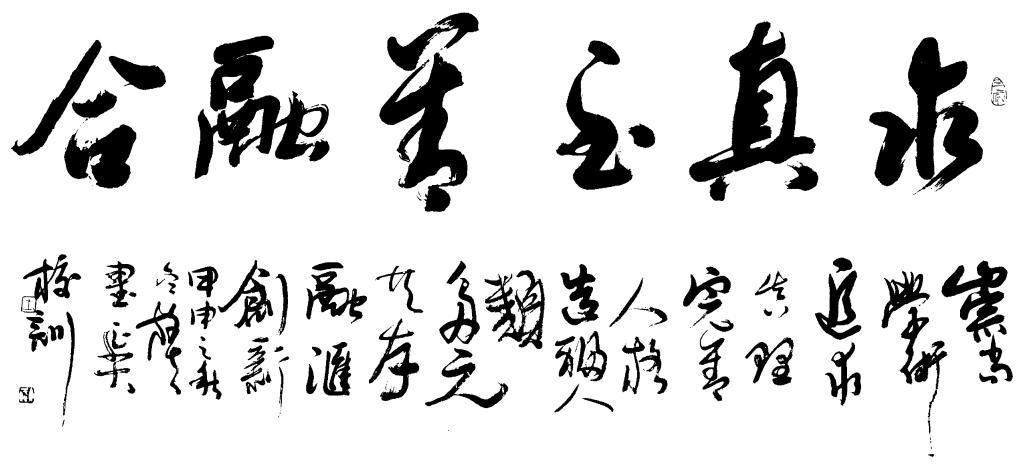 求真至善融合
崇尚
學術
追求
真理
完善
人格
造福人
類
多元
共存
融滙
創新
甲申之秋
書
校訓